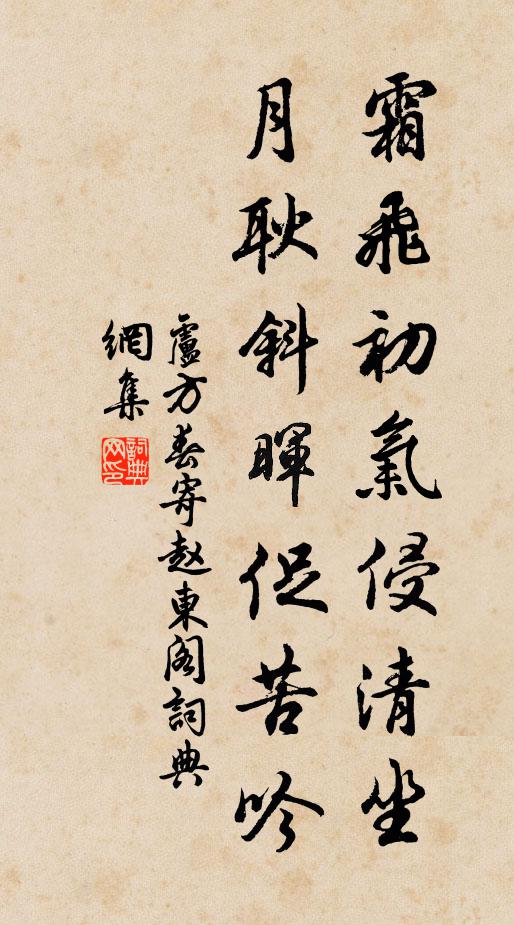 霜飛初氣侵清坐
月耿斜暉促苦吟
盧方春寄赵東阁詞典
網集
詞典网印